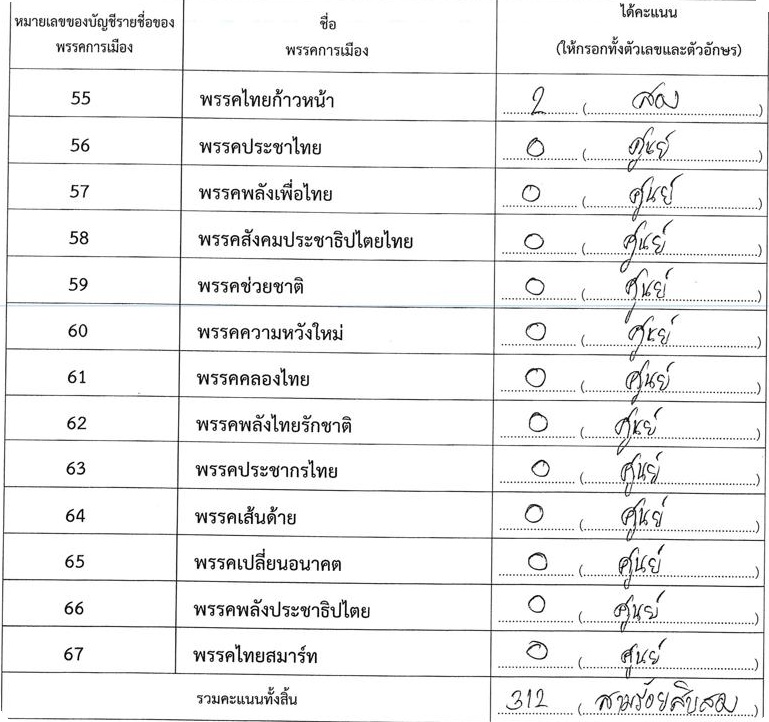 หมายเลขของบัญชีรายชื่อของ
พรรคการเมือง
ชื่อ
พรรคการเมือง
ได้คะแนน
(ให้กรอกทั้งตัวเลขและตัวอักษร)
55 พรรคไทยก้าวหน้า 2 (สอง)
56 พรรคประชาไทย 0 (ศูนย์)
57 พรรคพลังเพื่อไทย 0 (ศูนย์)
58 พรรคสังคมประชาธิปไตยไทย 0 (ศูนย์)
59 พรรคช่วยชาติ 0 (ศูนย์)
60 พรรคความหวังใหม่ 0 (ศูนย์)
61 พรรคคลองไทย 0 (ศูนย์)
62 พรรคพลังไทยรักชาติ 0 (ศูนย์)
63 พรรคประชากรไทย 0 (ศูนย์)
64 พรรคเส้นด้าย 0 (ศูนย์)
65 พรรคเปลี่ยนอนาคต 0 (ศูนย์)
66 พรรคพลังประชาธิปไตย 0 (ศูนย์)
67 พรรคไทยสมาร์ท 0 (ศูนย์)
รวมคะแนนทั้งสิ้น 312 (สามร้อยสิบสอง)